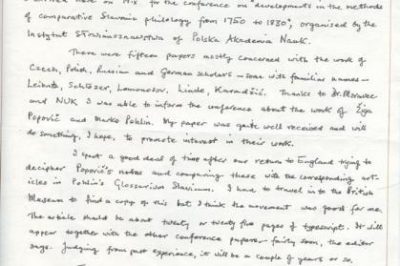 here on 19.x for the conference on developments in the methods
of comparative Slavonic philology from 1750 to 1830, organised by the
Instytut Słowianoznawstwa of Polska Akademia Nauk.
There were fifteen papers mostly concerned with the work of
Czech, Polish, Russian and German scholars – some with familiar names –
Leibnitz, Schlözer, Lomonosov, Linde, Karadžić. Thanks to Dr.
and NUK I was able to inform the conference about the work of Žiga
Popovič and Marko Pohlin. My paper was quite well received and will
do something, I hope, to promote interest in their work.
I spent a good deal of time after our return to England trying to
decipher Popovič's notes and comparing these with the corresponding art-
icles in Pohlin's Glossarium Slavicum. I had to travel in to the British
Museum to find a copy of this but I think the movement was good for me.
The article should be about twenty or twenty five pages of typescript. It will
appear together with the other conference papers fairly soon, the editor
says. Judging from past experience, it will be a couple of years or so.